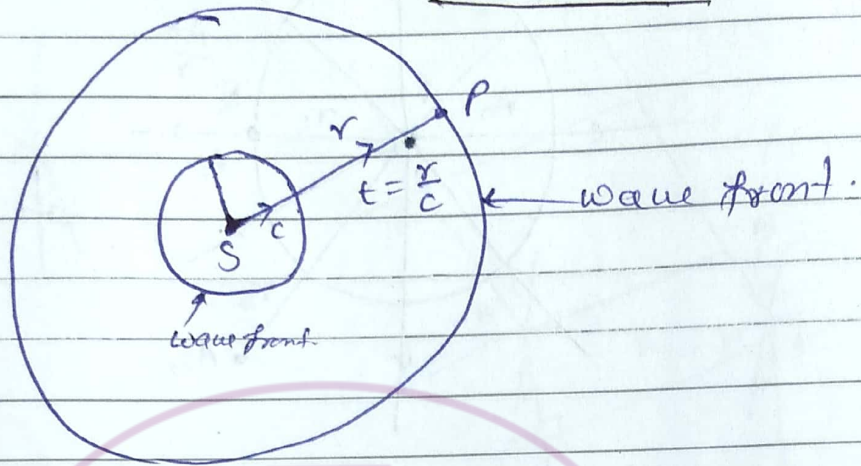 P
r
t = r/c
wave front.
c
S
wave front.